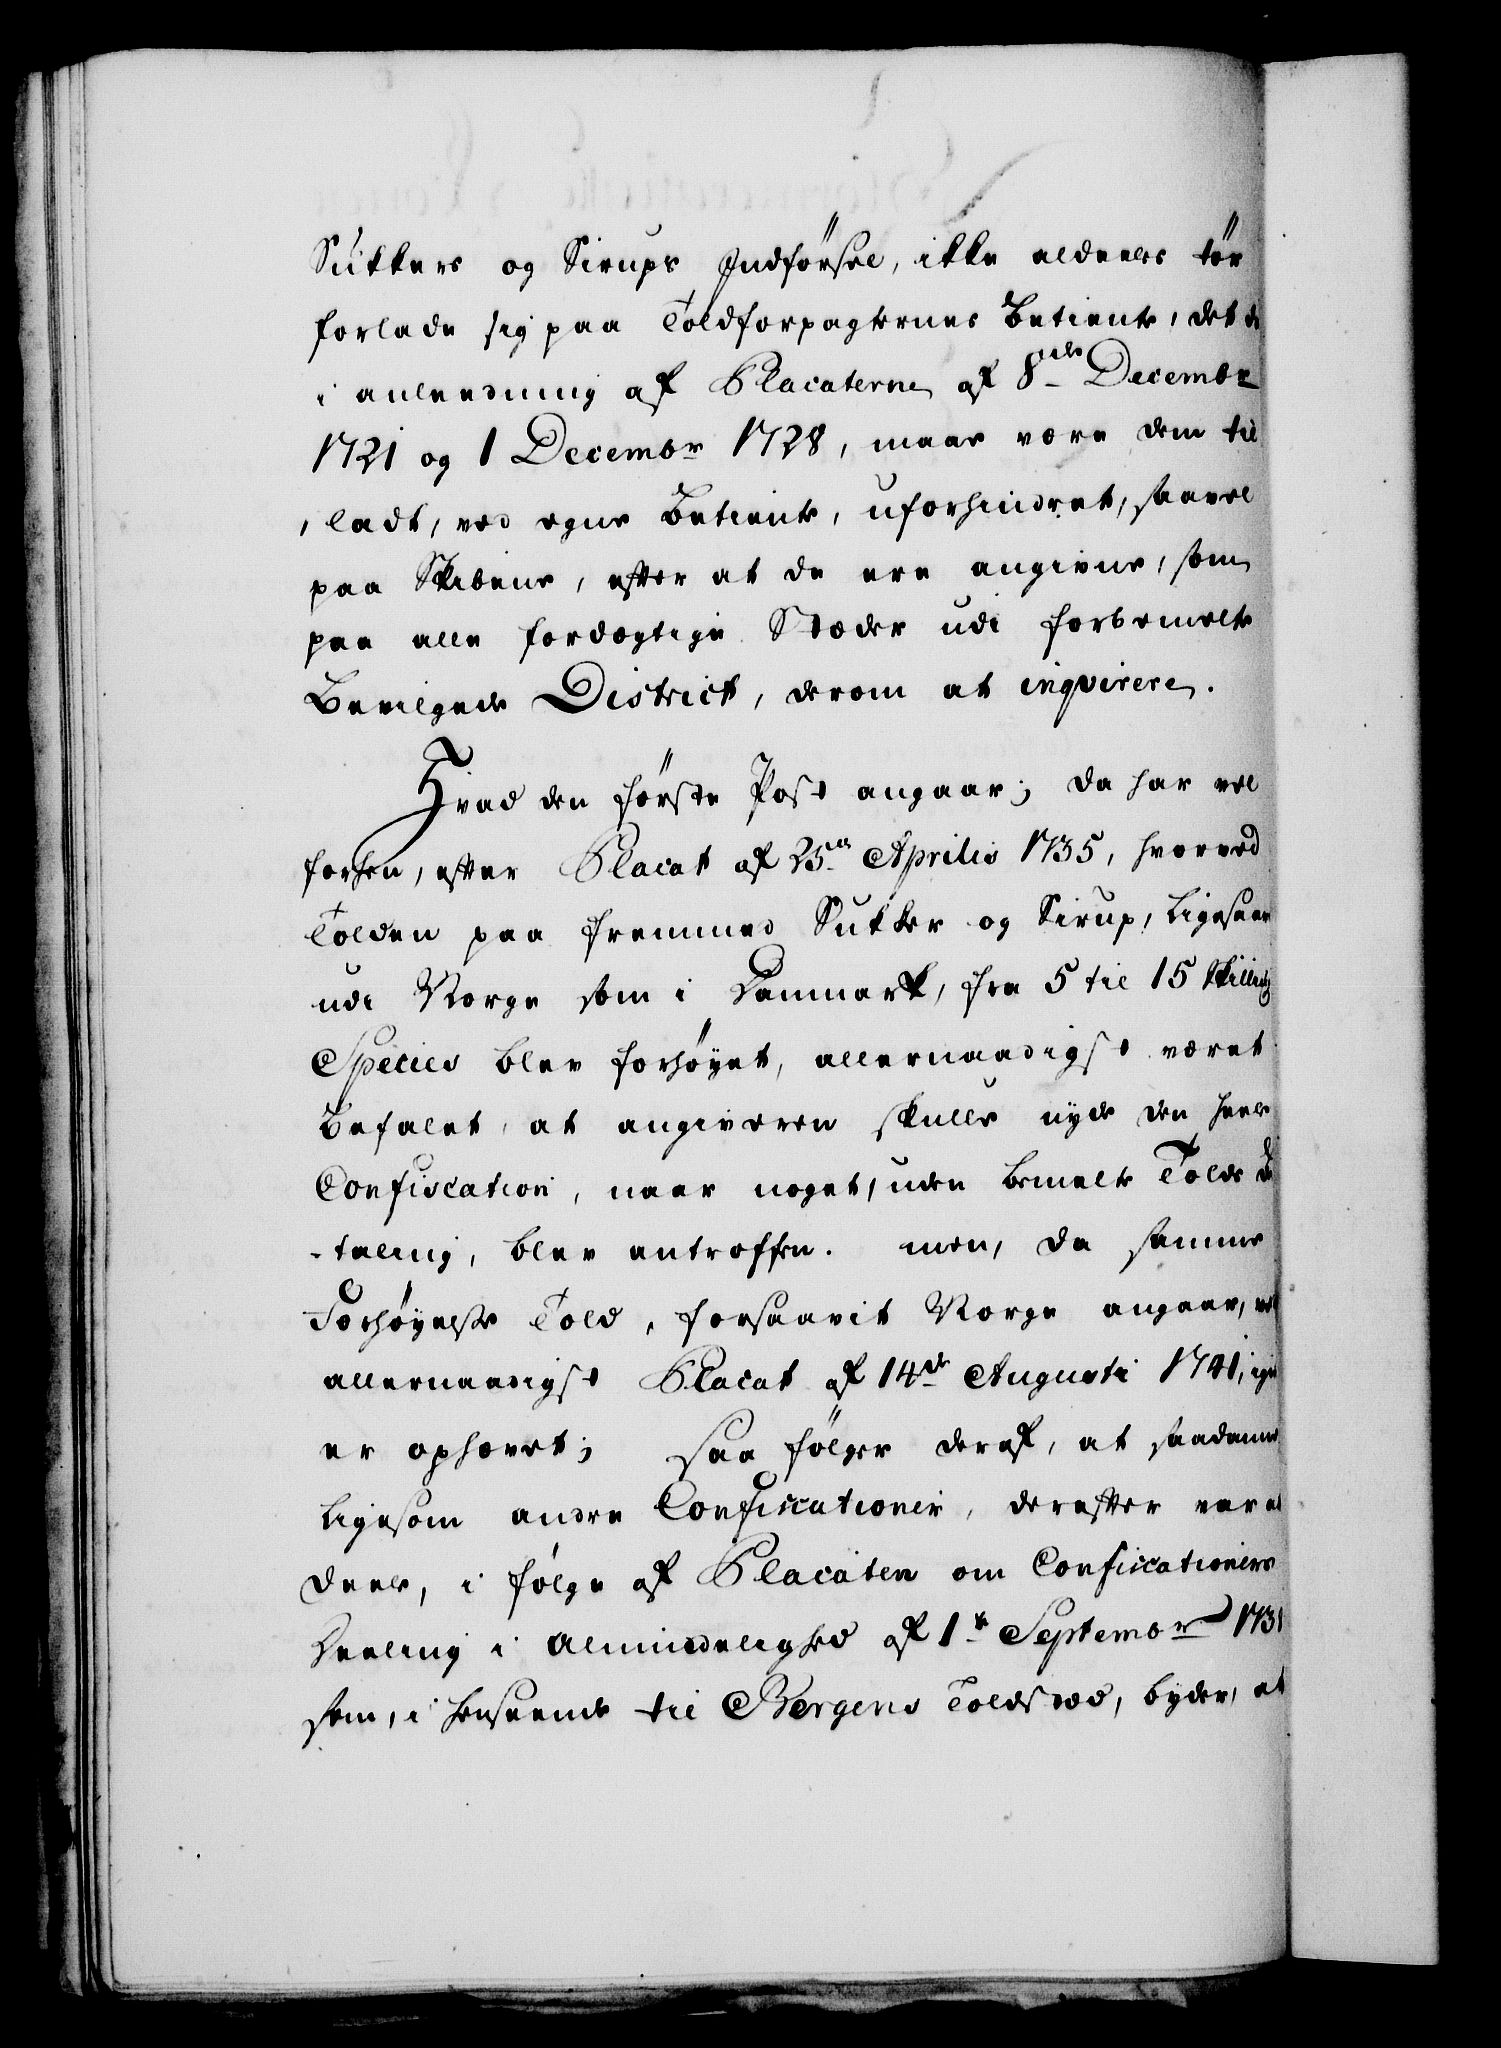 Sukkers og Sirups Indførsel, ikke aldeeles tør
forlade sig paa Toldforpagternes Betiente, det
i anleedning af Placaterne af 8de Decembr
1721 og 1 Decembr 1728, maae være dem til
ladt, ved egne Betiente, uforhindret, saavel
paa Skibene, efter at de ere angivne, som
paa alle fordægtige Stæder udi forbemelte
Bevilgede District, derom at inqvirere.
Hvad den første Post angaar; da har vel
forhen, efter Placat af 25de Aprilis 1735, hvorved
Tolden paa fremmed Sukker og Sirup, ligesaa
udi Norge som i Danmark, fra 5 til 15 Skilling
Species blev forhøyet, allernaadigst været
befalet, at angiveren skulle nyde den heele
Confiscation, naar noget, uden bemelte Tolds Be
-taling, blev antroffen. men, da samme
Forhøyelse Told, forsaavit Norge angaar, ved
allernaadigst Placat af 14de Augusti 1741, igien
er ophævet; saa følger deraf, at saadanne
ligesom andre Confiscationer, derefter
deele, i følge af Placaten om Confiscationers
Deeling i Almindelighed af 1te Septembr 1731
som, i henseende til Bergens Toldstæd, byder, at